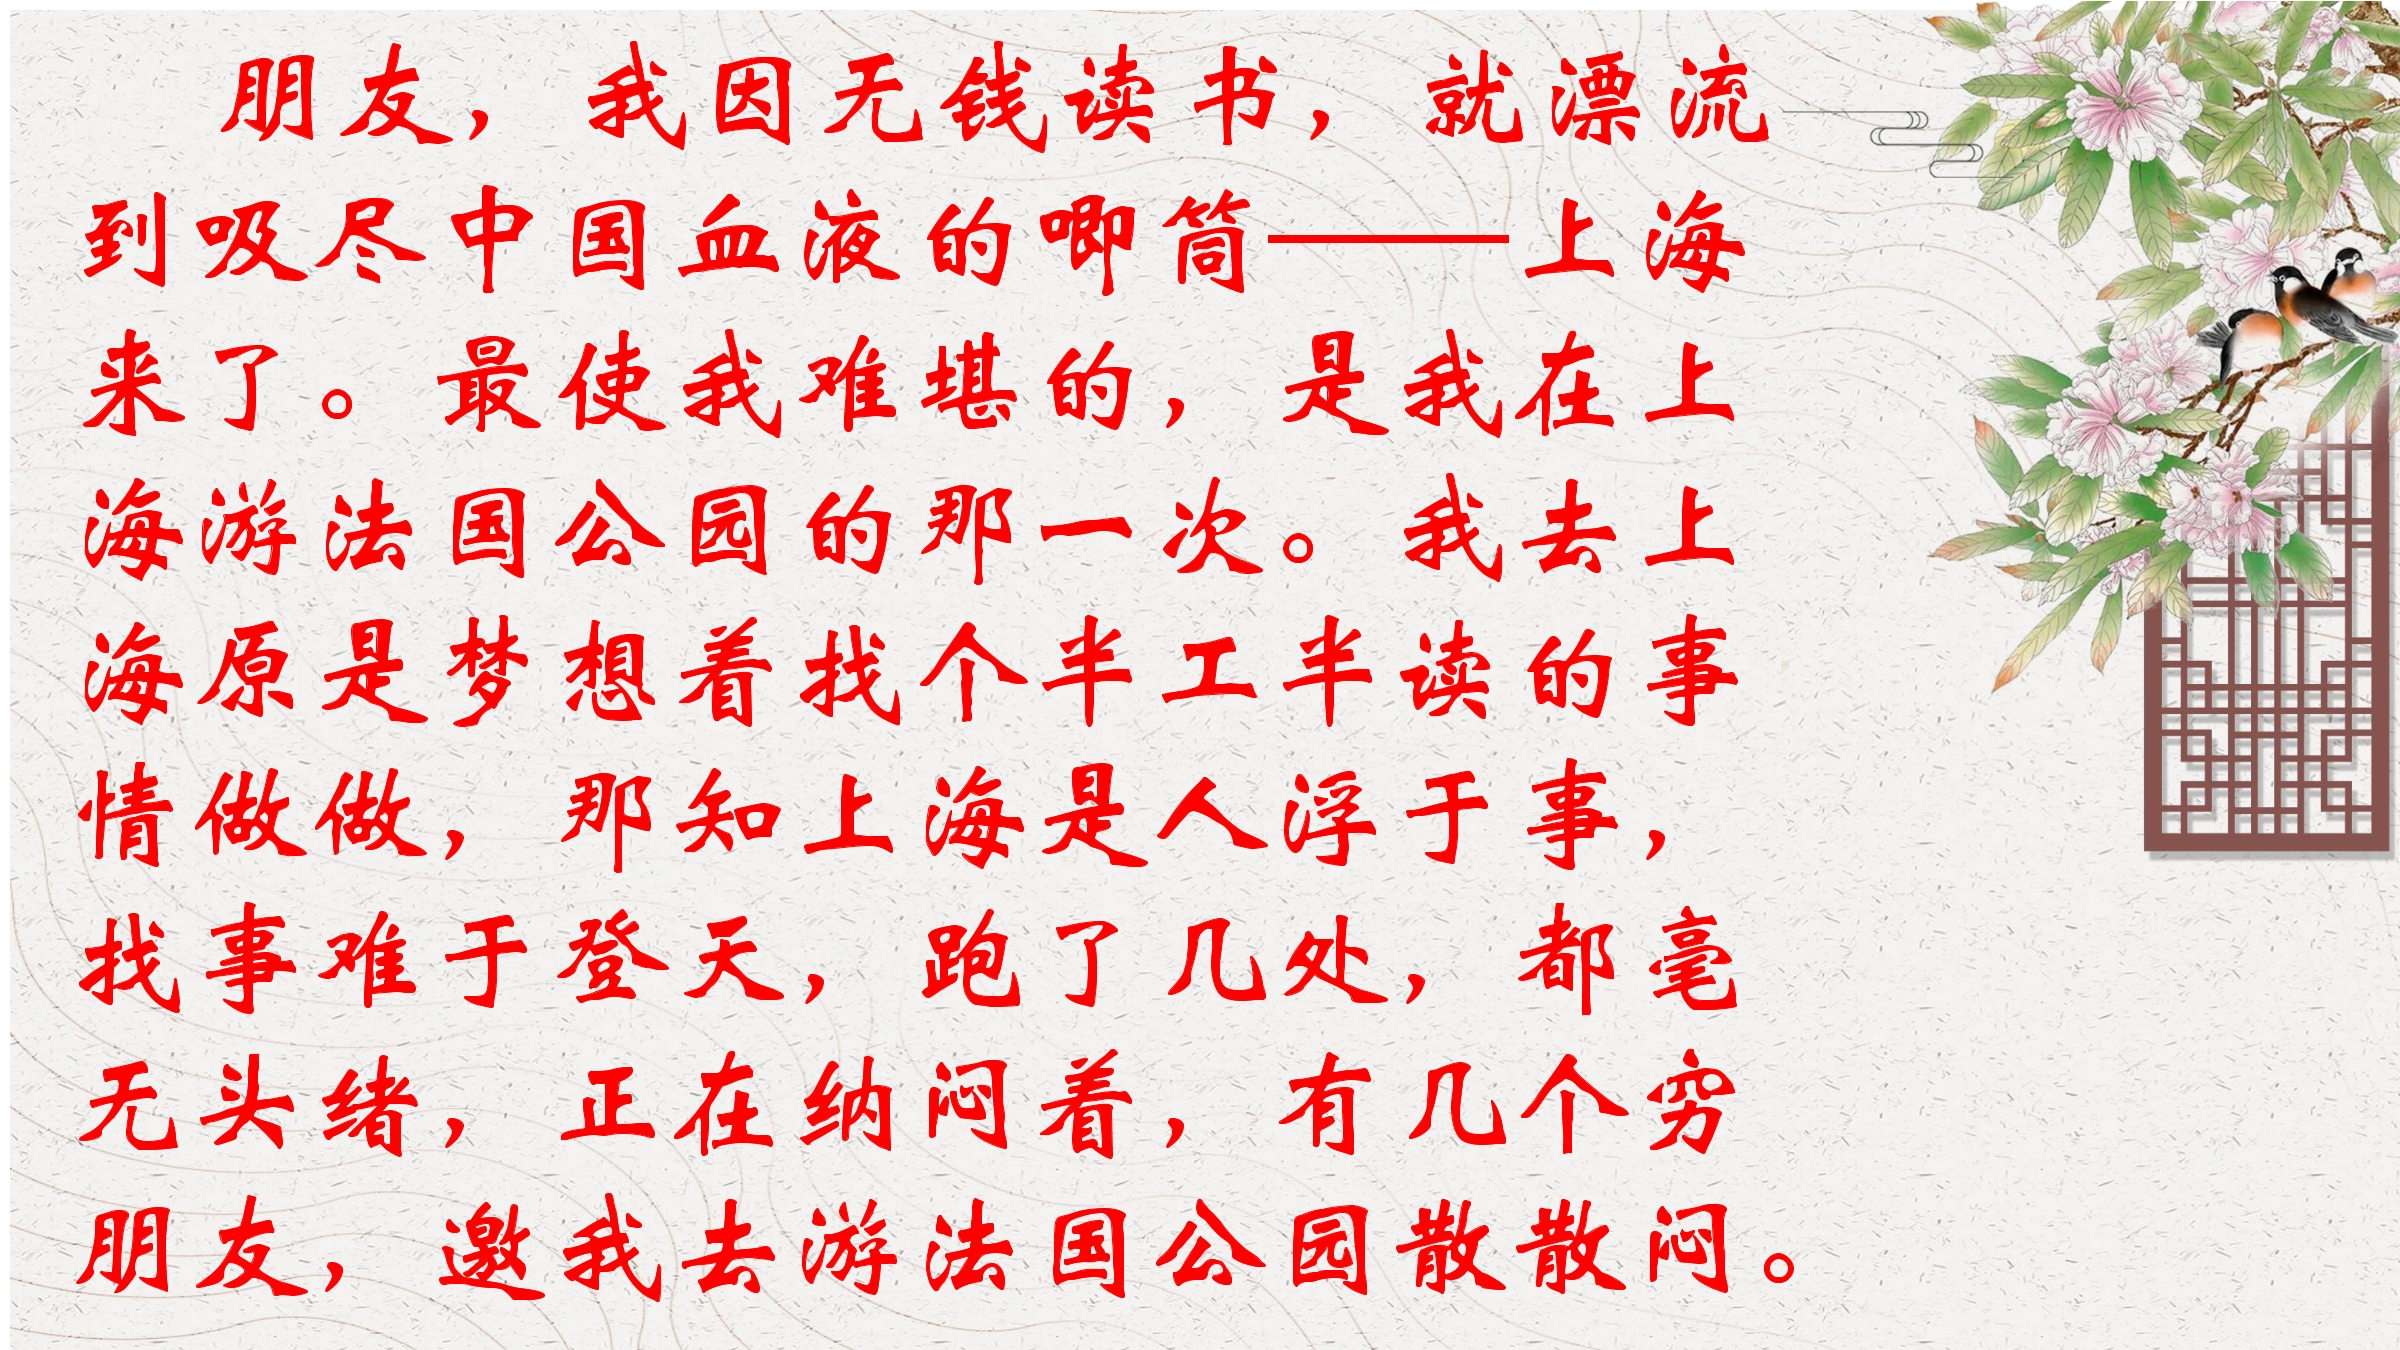 朋友，我因无钱读书，就漂流
到吸尽中国血液的唧筒——上海
来了。最使我难堪的，是我在上
海游法国公园的那一次。我去上
海原是梦想着找个半工半读的事
情做做，那知上海是人浮于事，
找事难于登天，跑了几处，都毫
无头绪，正在纳闷着，有几个穷
朋友，邀我去游法国公园散散闷。